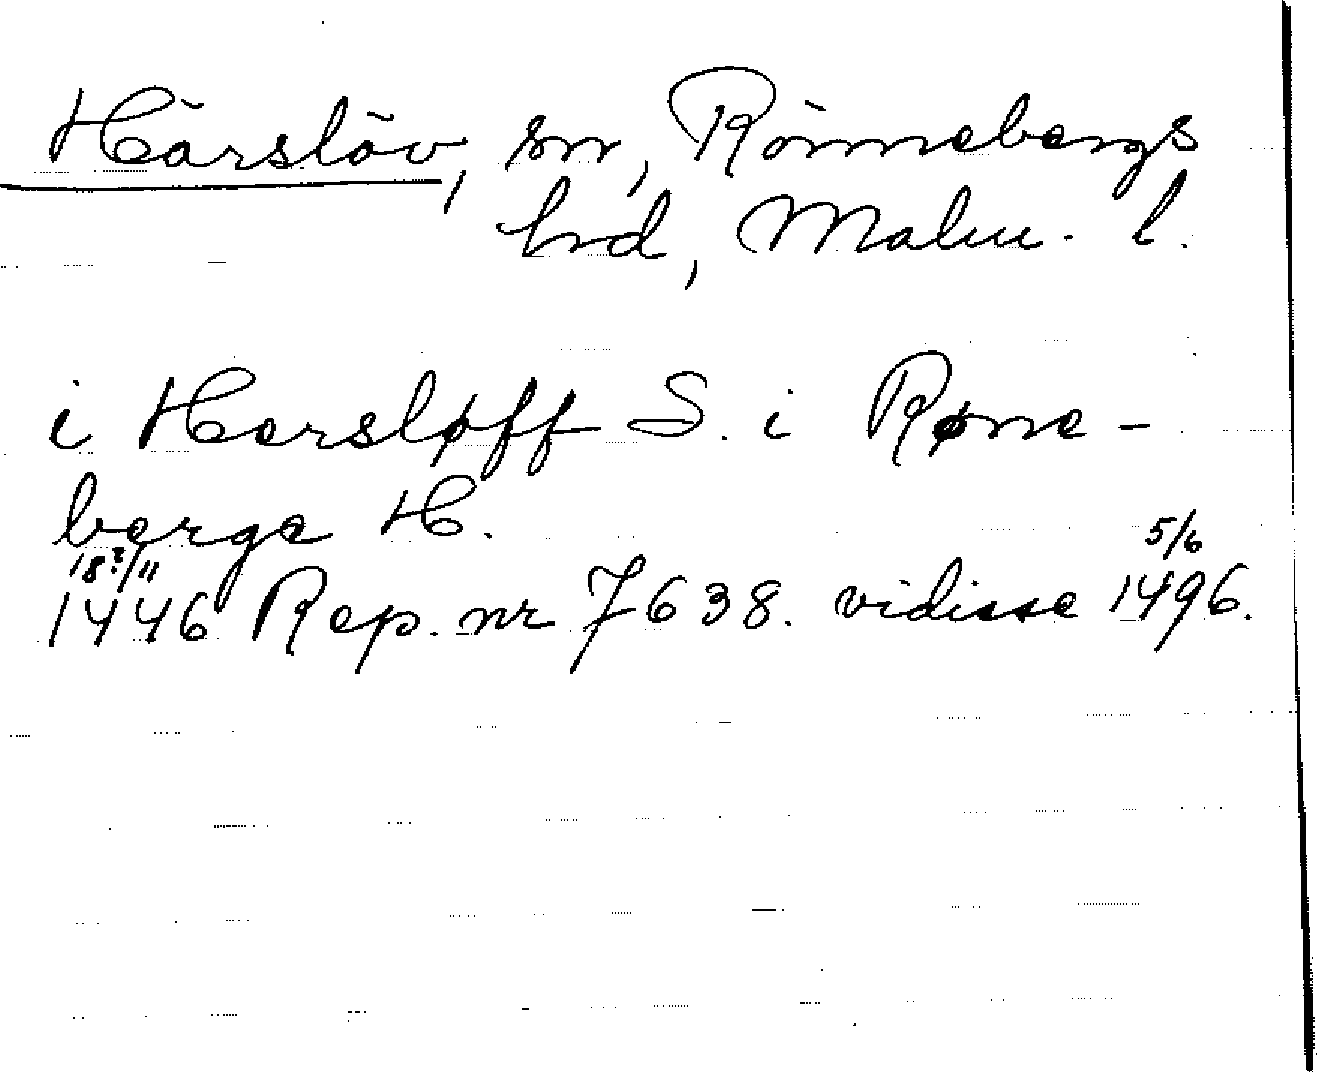 Härslöv, sn, Rönnebergs
hrd, Malm. l.
i Hersløff S. i Røne-
berge H.
18?/11 5/6
1446 Rep. nr 7638. vidisse 1496.